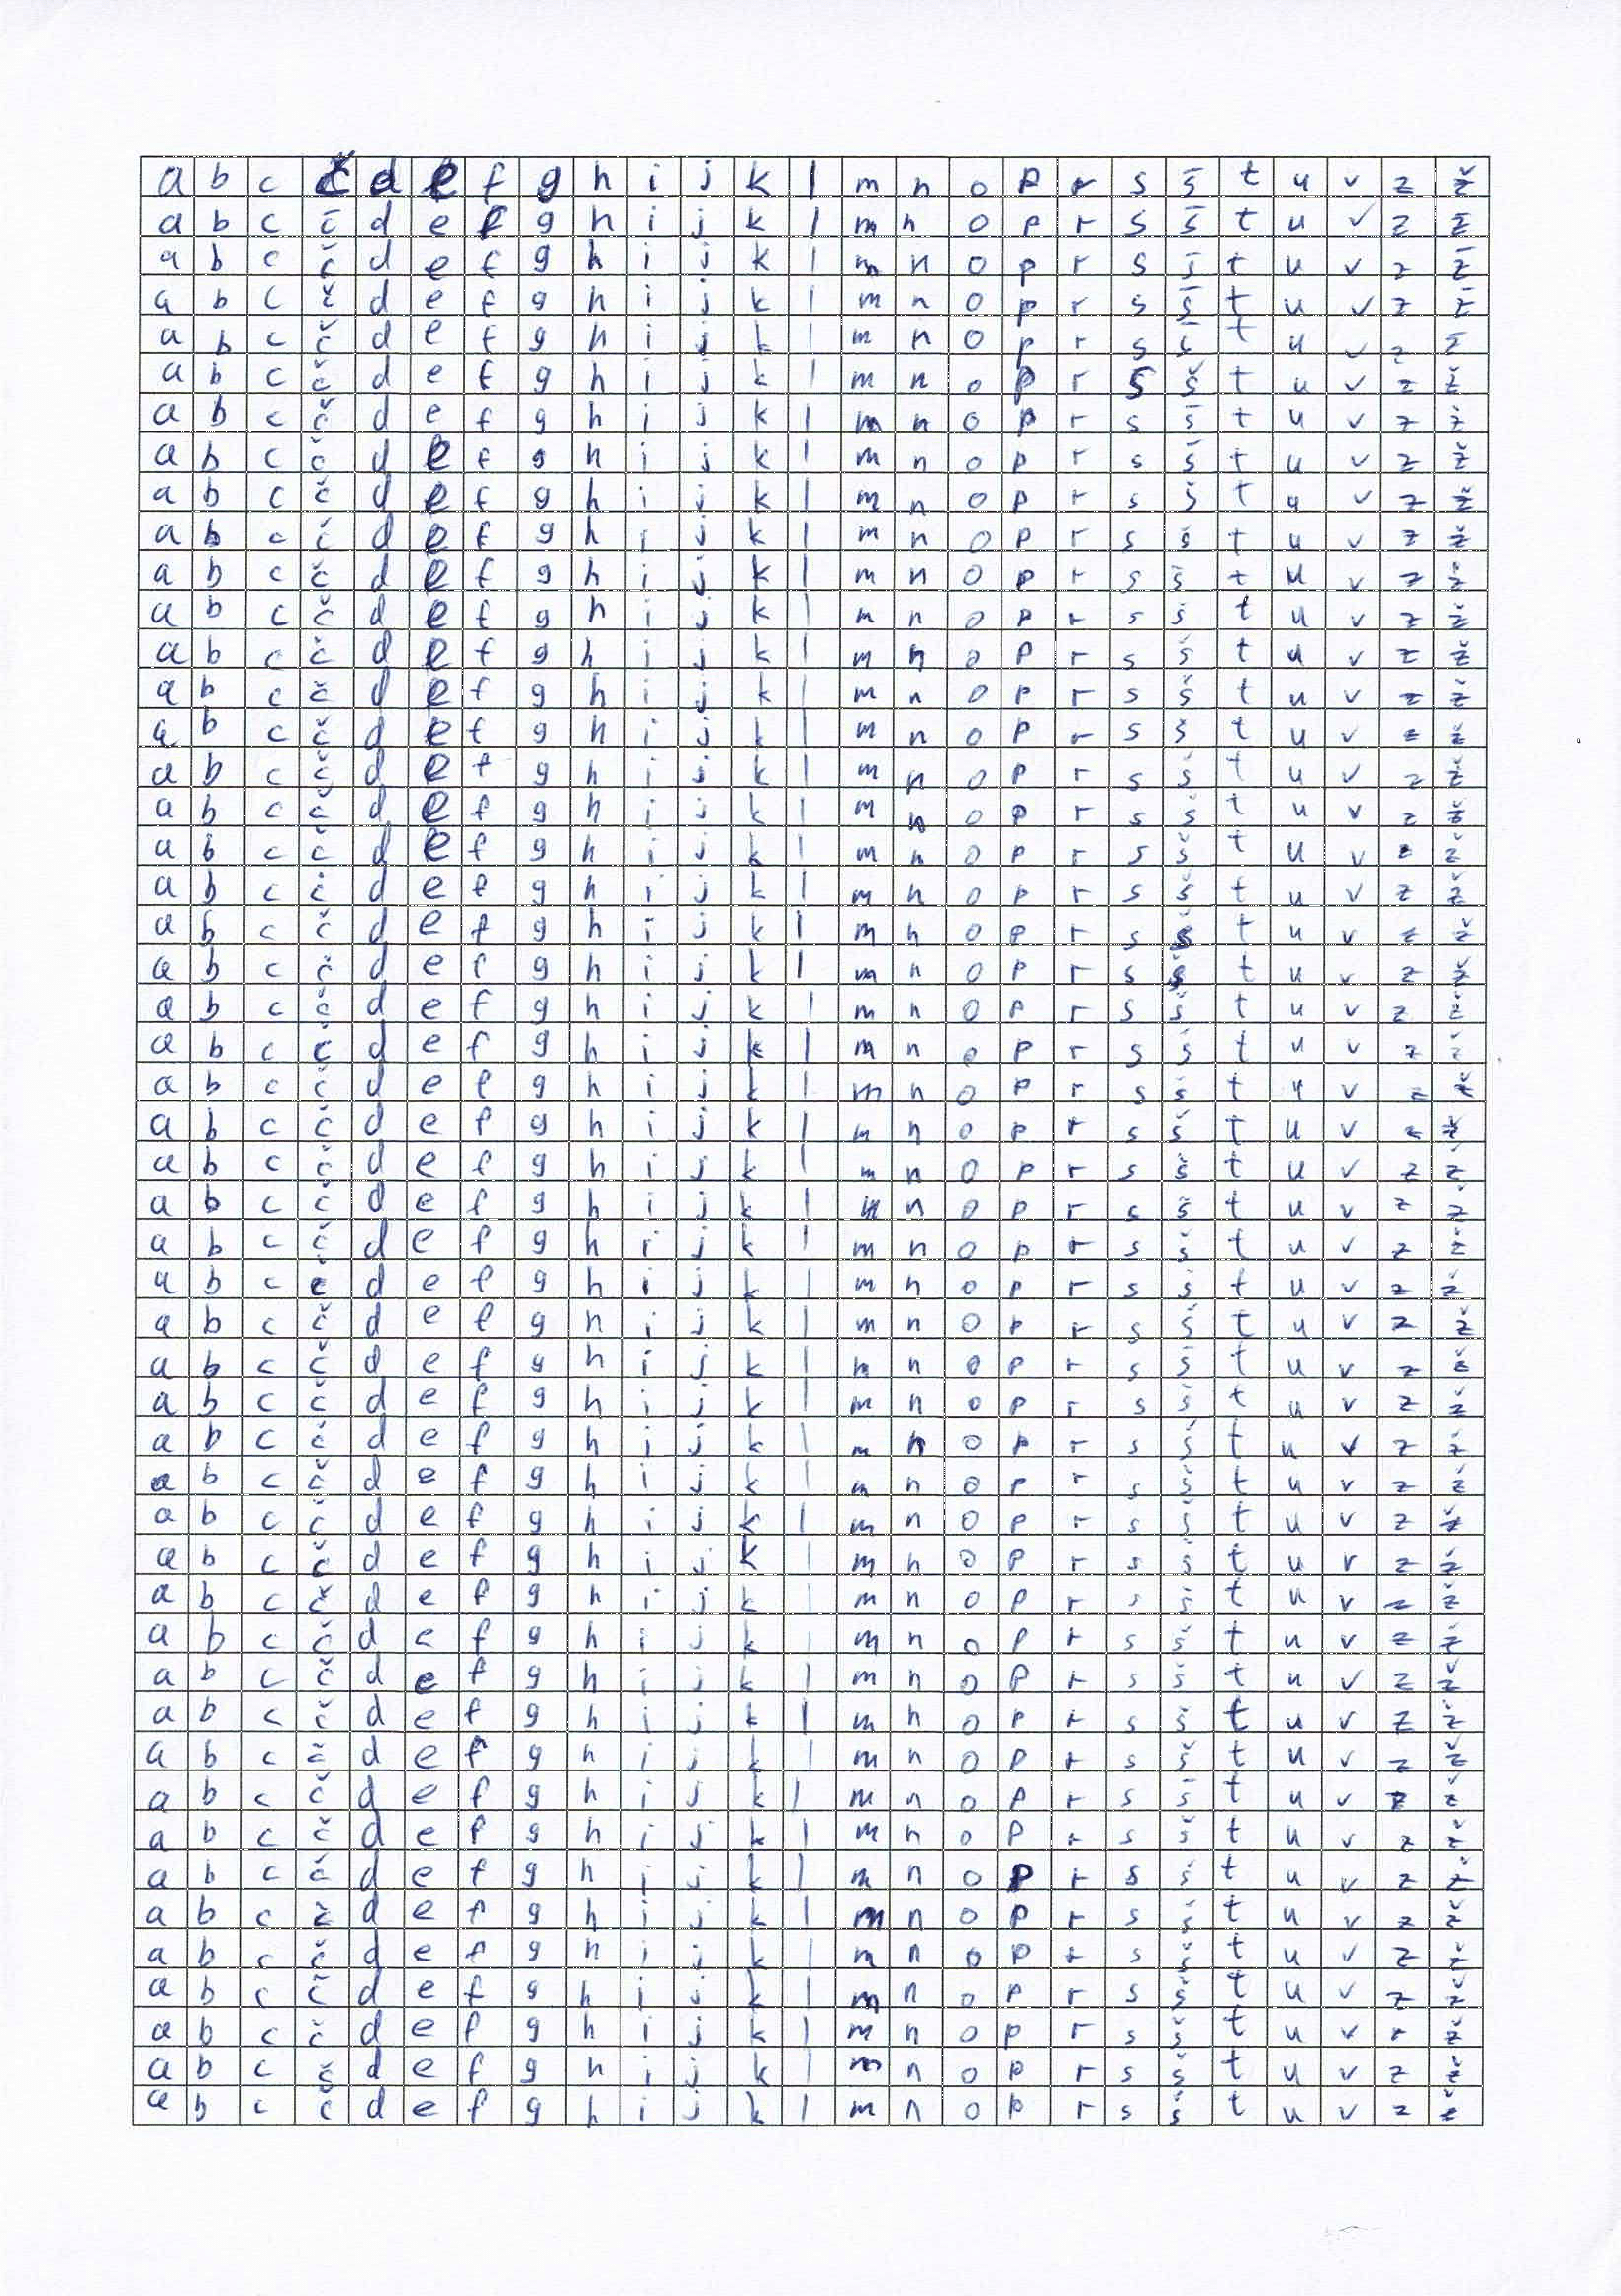 a b c č d e f g h i j k l m n o p r s š t u v z ž
a b c č d e f g h i j k l m n o p r s š t u v z ž
a b c č d e f g h i j k l m n o p r s š t u v z ž
a b c č d e f g h i j k l m n o p r s š t u v z ž
a b c č d e f g h i j k l m n o p r s š t u v z ž
a b c č d e f g h i j k l m n o p r s š t u v z ž
a b c č d e f g h i j k l m n o p r s š t u v z ž
a b c č d e f g h i j k l m n o p r s š t u v z ž
a b c č d e f g h i j k l m n o p r s š t u v z ž
a b c č d e f g h i j k l m n o p r s š t u v z ž
a b c č d e f g h i j k l m n o p r s š t u v z ž
a b c č d e f g h i j k l m n o p r s š t u v z ž
a b c č d e f g h i j k l m n o p r s š t u v z ž
a b c č d e f g h i j k l m n o p r s š t u v z ž
a b c č d e f g h i j k l m n o p r s š t u v z ž
a b c č d e f g h i j k l m n o p r s š t u v z ž
a b c č d e f g h i j k l m n o p r s š t u v z ž
a b c č d e f g h i j k l m n o p r s š t u v z ž
a b c č d e f g h i j k l m n o p r s š t u v z ž
a b c č d e f g h i j k l m n o p r s š t u v z ž
a b c č d e f g h i j k l m n o p r s š t u v z ž
a b c č d e f g h i j k l m n o p r s š t u v z ž
a b c č d e f g h i j k l m n o p r s š t u v z ž
a b c č d e f g h i j k l m n o p r s š t u v z ž
a b c č d e f g h i j k l m n o p r s š t u v z ž
a b c č d e f g h i j k l m n o p r s š t u v z ž
a b c č d e f g h i j k l m n o p r s š t u v z ž
a b c č d e f g h i j k l m n o p r s š t u v z ž
a b c č d e f g h i j k l m n o p r s š t u v z ž
a b c č d e f g h i j k l m n o p r s š t u v z ž
a b c č d e f g h i j k l m n o p r s š t u v z ž
a b c č d e f g h i j k l m n o p r s š t u v z ž
a b c č d e f g h i j k l m n o p r s š t u v z ž
a b c č d e f g h i j k l m n o p r s š t u v z ž
a b c č d e f g h i j k l m n o p r s š t u v z ž
a b c č d e f g h i j k l m n o p r s š t u v z ž
a b c č d e f g h i j k l m n o p r s š t u v z ž
a b c č d e f g h i j k l m n o p r s š t u v z ž
a b c č d e f g h i j k l m n o p r s š t u v z ž
a b c č d e f g h i j k l m n o p r s š t u v z ž
a b c č d e f g h i j k l m n o p r s š t u v z ž
a b c č d e f g h i j k l m n o p r s š t u v z ž
a b c č d e f g h i j k l m n o p r s š t u v z ž
a b c č d e f g h i j k l m n o p r s š t u v z ž
a b c č d e f g h i j k l m n o p r s š t u v z ž
a b c č d e f g h i j k l m n o p r s š t u v z ž
a b c č d e f g h i j k l m n o p r s š t u v z ž
a b c č d e f g h i j k l m n o p r s š t u v z ž
a b c š d e f g h i j k l m n o p r s š t u v z ž
a b c č d e f g h i j k l m n o p r s š t u v z ž